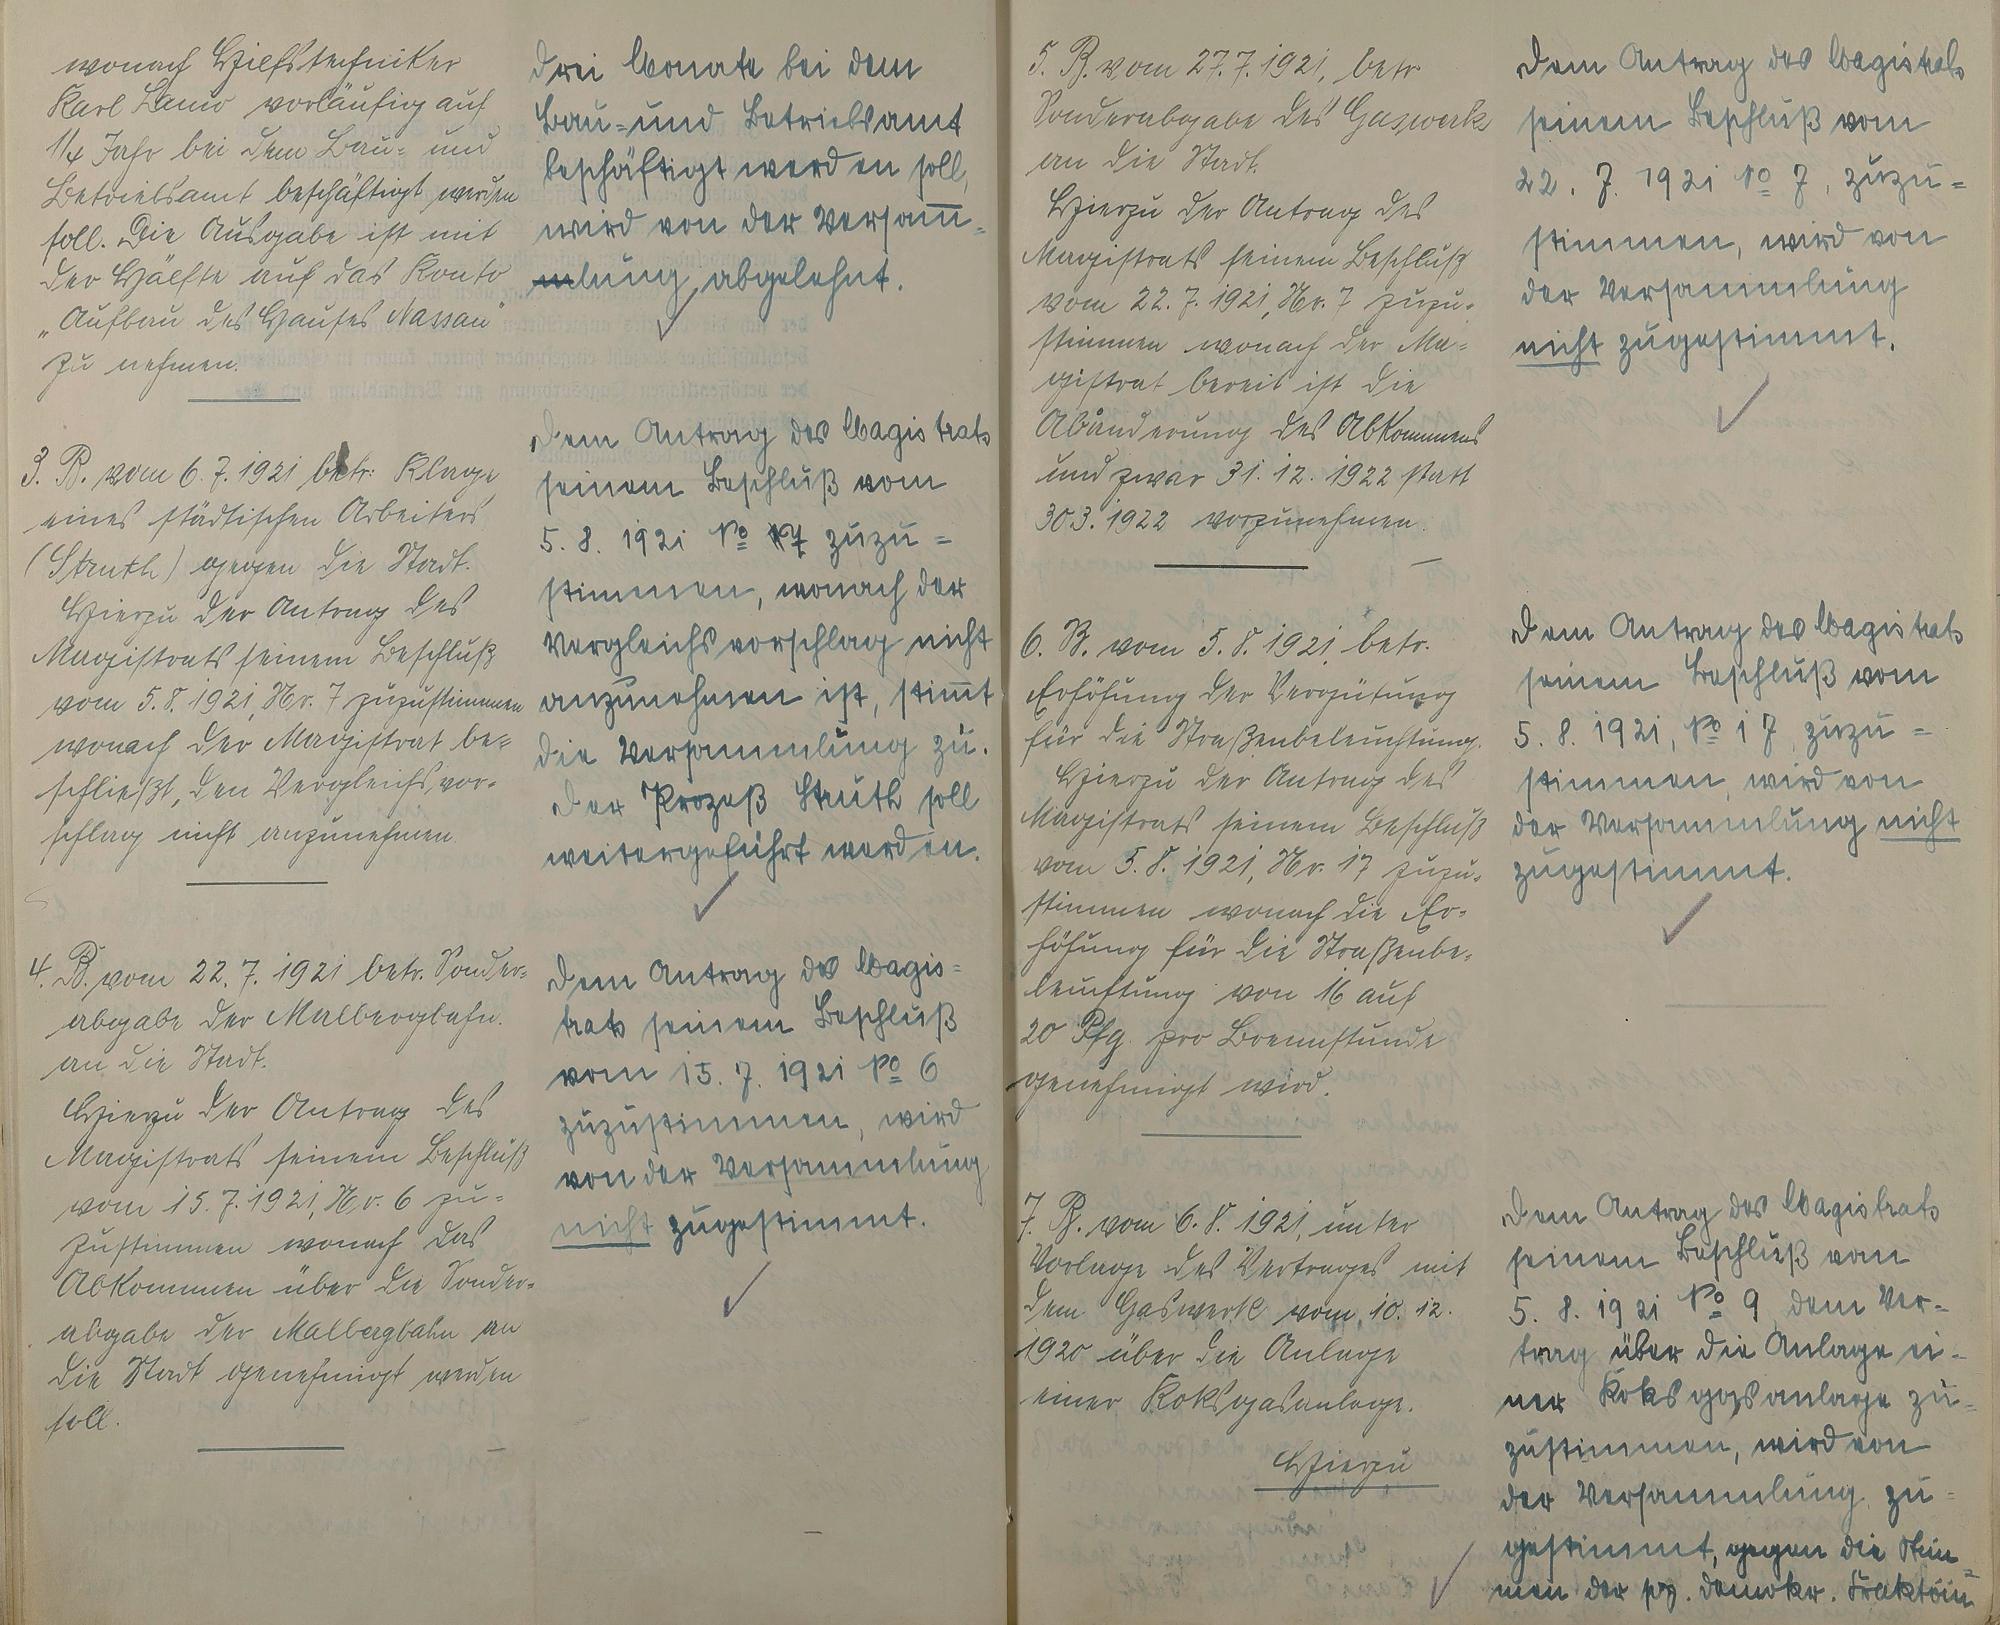 wonach Hilfstechniker
Karl Lanio vorläufig auf
1/4 Jahr bei dem Bau- und
Betriebsamt beschäftigt werden
soll. Die Ausgabe ist mit
der Hälfte auf das Konto
„Aufbau des Hauses Nassau"
zu nehmen.
3. B. vom 6.7.1921 betr: Klage
eines städtischen Arbeiters
(Struth) gegen die Stadt.
Hierzu der Antrag des
Magistrats seinem Beschluß
vom 5.8.1921, Nr. 7 zuzustimmen
wonach der Magistrat be-
schließt, den Vergleichsvor-
schlag nicht anzunehmen.
4. B. vom 22.7.1921 betr. Sonder-
abgabe der Malbergbahn.
an die Stadt.
Hierzu der Antrag des
Magistrats seinem Beschluß
vom 15.7.1921, Nr. 6 zu-
zustimmen wonach das
Abkommen über die Sonder-
abgabe der Malbergbahn an
die Stadt genehmigt werden
soll.
drei Monate bei dem
Bau- und Betriebsamt
beschäftigt werden soll,
wird von der Versam̅-
lung abgelehnt.
Dem Antrag des Magistrats
seinem Beschluß vom
5. 8. 1921 No 7 zuzu-
stimmen, wonach der
Vergleichsvorschlag nicht
anzunehmen ist, stim̅t
die Versammlung zu.
Der Prozeß Struth soll
weitergeführt werden.
Dem Antrag des Magis-
trats seinem Beschluß
vom 15. 7. 1921 No 6
zuzustimmen, wird
von der Versammlung
nicht zugestimmt.
5. B. vom 27.7.1921, betr
Sonderabgabe des Gaswerks
an die Stadt.
Hierzu der Antrag des
Magistrats seinem Beschluß
vom 22.7.1921, Nr. 7 zuzu-
stimmen wonach der Ma-
gistrat bereit ist die
Abänderung des Abkommens
und zwar 31. 12. 1922 statt
30.3.1922 vorzunehmen.
6. B. vom 5.8.1921, betr.
Erhöhung der Vergütung
für die Straßenbeleuchtung.
Hierzu der Antrag des
Magistrats seinem Beschluß
vom 5.8.1921, Nr. 17 zuzu-
stimmen wonach die Er-
höhung für die Straßenbe-
leuchtung von 16 auf
20 Pfg. pro Brennstunde
genehmigt wird.
7. B. vom 6.8.1921, unter
Vorlage des Vertrages mit
dem Gaswerk vom 10. 12.
1920 über die Anlage
einer Koksgasanlage.
Hierzu
Dem Antrag des Magistrats
seinem Beschluß vom
22. 7. 1921 No 7, zuzu-
stimmen, wird von
der Versammlung
nicht zugestimmt.
Dem Antrag des Magistrats
seinem Beschluß vom
5. 8. 1921, No 17, zuzu-
stimmen, wird von
der Versammlung nicht
zugestimmt.
Dem Antrag des Magistrats
seinem Beschluß vom
5. 8. 1921 No 9 dem Ver-
trag über die Anlage ei-
ner Koksgasanlage zu-
zustimmen, wird von
der Versammlung zu-
gestimmt, gegen die Stim-
men der soz. demokr. Fraktion